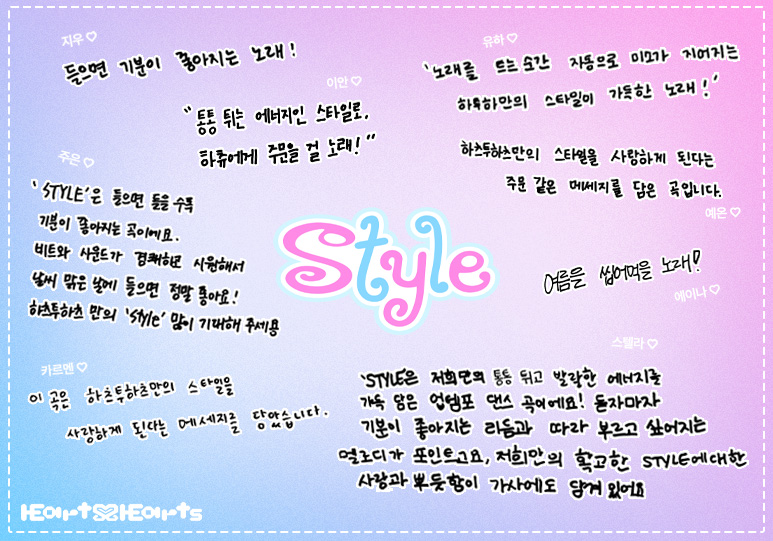 지우♡
들으면 기분이 좋아지는 노래!
이안♡
"통통 튀는 에너지인 스타일로,
하츄에게 주문을 걸 노래!"
유하♡
'노래를 트는 순간 자동으로 미소가 지어지는
하투하만의 스타일이 가득한 노래!'
하츠투하츠만의 스타일을 사랑하게 된다는
주문 같은 메세지를 담은 곡입니다.
예온♡
주은♡
'STYLE'은 들으면 들을수록
기분이 좋아지는 곡이에요.
비트와 사운드가 경쾌하고 시원해서
날씨 맑은 날에 들으면 정말 좋아요!
하츠투하츠 만의 'style' 많이 기대해 주세용
Style
여름을 씹어먹을 노래!
에이나♡
카르멘♡
이 곡은 하츠투하츠만의 스타일을
사랑하게 된다는 메세지를 담았습니다.
스텔라♡
'STYLE'은 저희만의 통통 튀고 발랄한 에너지를
가득 담은 업템포 댄스 곡이에요! 듣자마자
기분이 좋아지는 리듬과 따라 부르고 싶어지는
멜로디가 포인트고요, 저희만의 확고한 STYLE에 대한
사랑과 뿌듯함이 가사에도 담겨 있어요
HEarts2HEarts